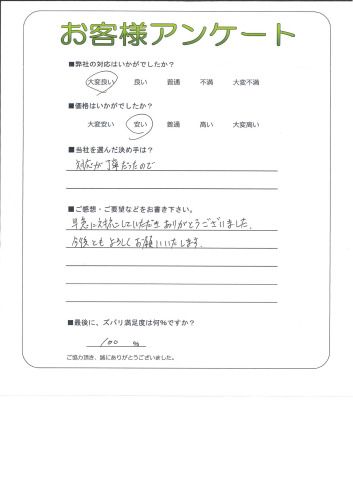 お客様アンケート
■弊社の対応はいかがでしたか？
大変良い 良い 普通 不満 大変不満
■価格はいかがでしたか？
大変安い 安い 普通 高い 大変高い
■当社を選んだ決め手は？
対応が丁寧だったので
■ご感想・ご要望などをお書き下さい。
早急に対応していただきありがとうございました。
今後ともよろしくお願いいたします。
■最後に、ズバリ満足度は何%ですか？
100 %
ご協力頂き、誠にありがとうございました。